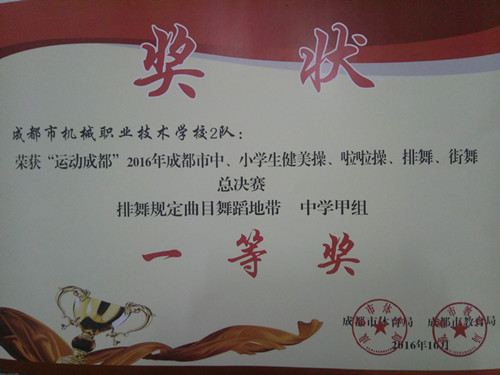 奖 状
成都市机械职业技术学校2队：
荣获“运动成都”2016年成都市中、小学生健美操、啦啦操、排舞、街舞
总决赛
排舞规定曲目舞蹈地带 中学甲组
一等奖
成都市体育局 成都市教育局
2016年10月